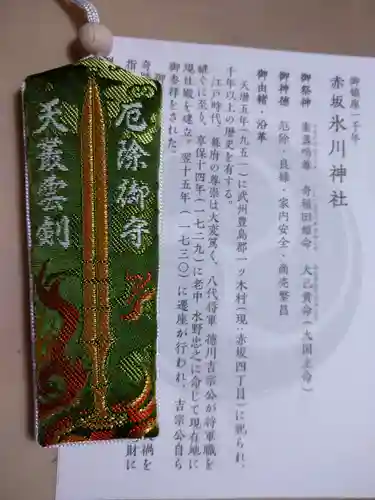 厄除御守
天叢雲剣
御鎮座一千年
赤坂氷川神社
御祭神 素盞嗚尊・奇稲田姫命・大己貴命(大国主命)
御神徳 厄除・良縁・家内安全・商売繁昌
御由緒・沿革
天暦五年(九五一)に武州豊島郡一ツ木村(現・赤坂四丁目)に祀られ、
千年以上の歴史を有する。
江戸時代、幕府の尊崇は大変篤く、八代将軍 徳川吉宗公が将軍職を
継ぐに至り、享保十四年(一七二九)に老中 水野忠之に命じて現在地に
現社殿を建立。翌十五年(一七三〇)に遷座が行われ、吉宗公自ら
御参拝をされた。